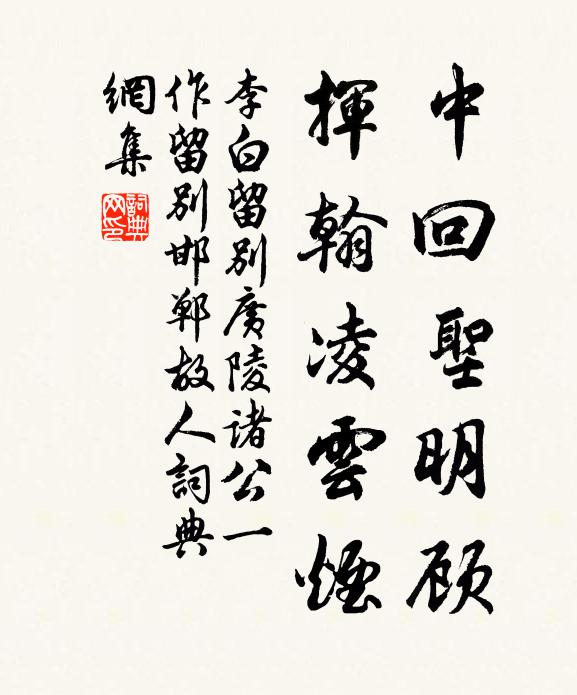 中回聖明顾
揮翰凌雲煙
李白留别廣陵諸公一
作留别邯鄲故人詞典
網集
詞典
网印